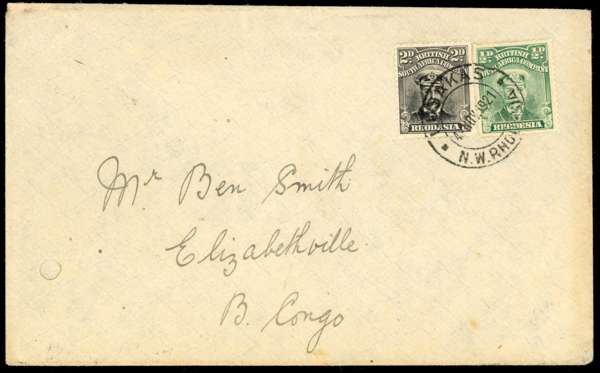 2D 2D
BRITISH
SOUTH AFRICA COMPANY
RHODESIA
½D ½D
BRITISH
SOUTH AFRICA COMPANY
RHODESIA
NOV 1921
N.W.RHO
Mr Ben Smith
Elizabethville.
B. Congo